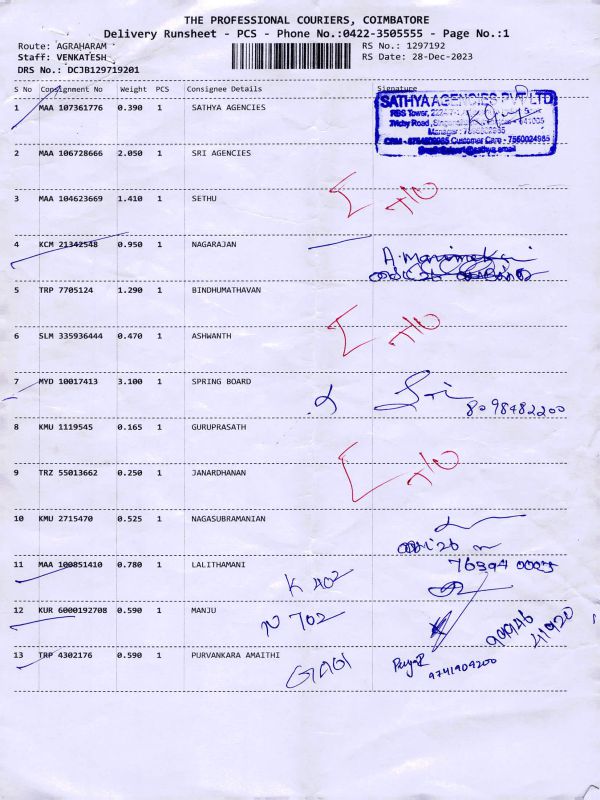 THE PROFESSIONAL COURIERS, COIMBATORE
Delivery Runsheet - PCS - Phone No.:0422-3505555 - Page No.:1
Route: AGRAHARAM RS No.: 1297192
Staff: VENKATESH RS Date: 28-Dec-2023
DRS No.: DCJB129719201
S No Consignment No Weight PCS Consignee Details Signature
1 MAA 107361776 0.390 1 SATHYA AGENCIES
SATHYA AGENCIES PVT LTD
RBS Tower,
Trichy Road, 641005
Manager :
Customer Care - 7550024985
2 MAA 106728666 2.050 1 SRI AGENCIES
3 MAA 104623669 1.410 1 SETHU
4 KCM 21342548 0.950 1 NAGARAJAN
5 TRP 7705124 1.290 1 BINDHUMATHAVAN
6 SLM 335936444 0.470 1 ASHWANTH
7 MYD 10017413 3.100 1 SPRING BOARD
8098482200
8 KMU 1119545 0.165 1 GURUPRASATH
9 TRZ 55013662 0.250 1 JANARDHANAN
10 KMU 2715470 0.525 1 NAGASUBRAMANIAN
11 MAA 100851410 0.780 1 LALITHAMANI
K 402
12 KUR 6000192708 0.590 1 MANJU
N 702
99946 41920
13 TRP 4302176 0.590 1 PURVANKARA AMAITHI
9741909200